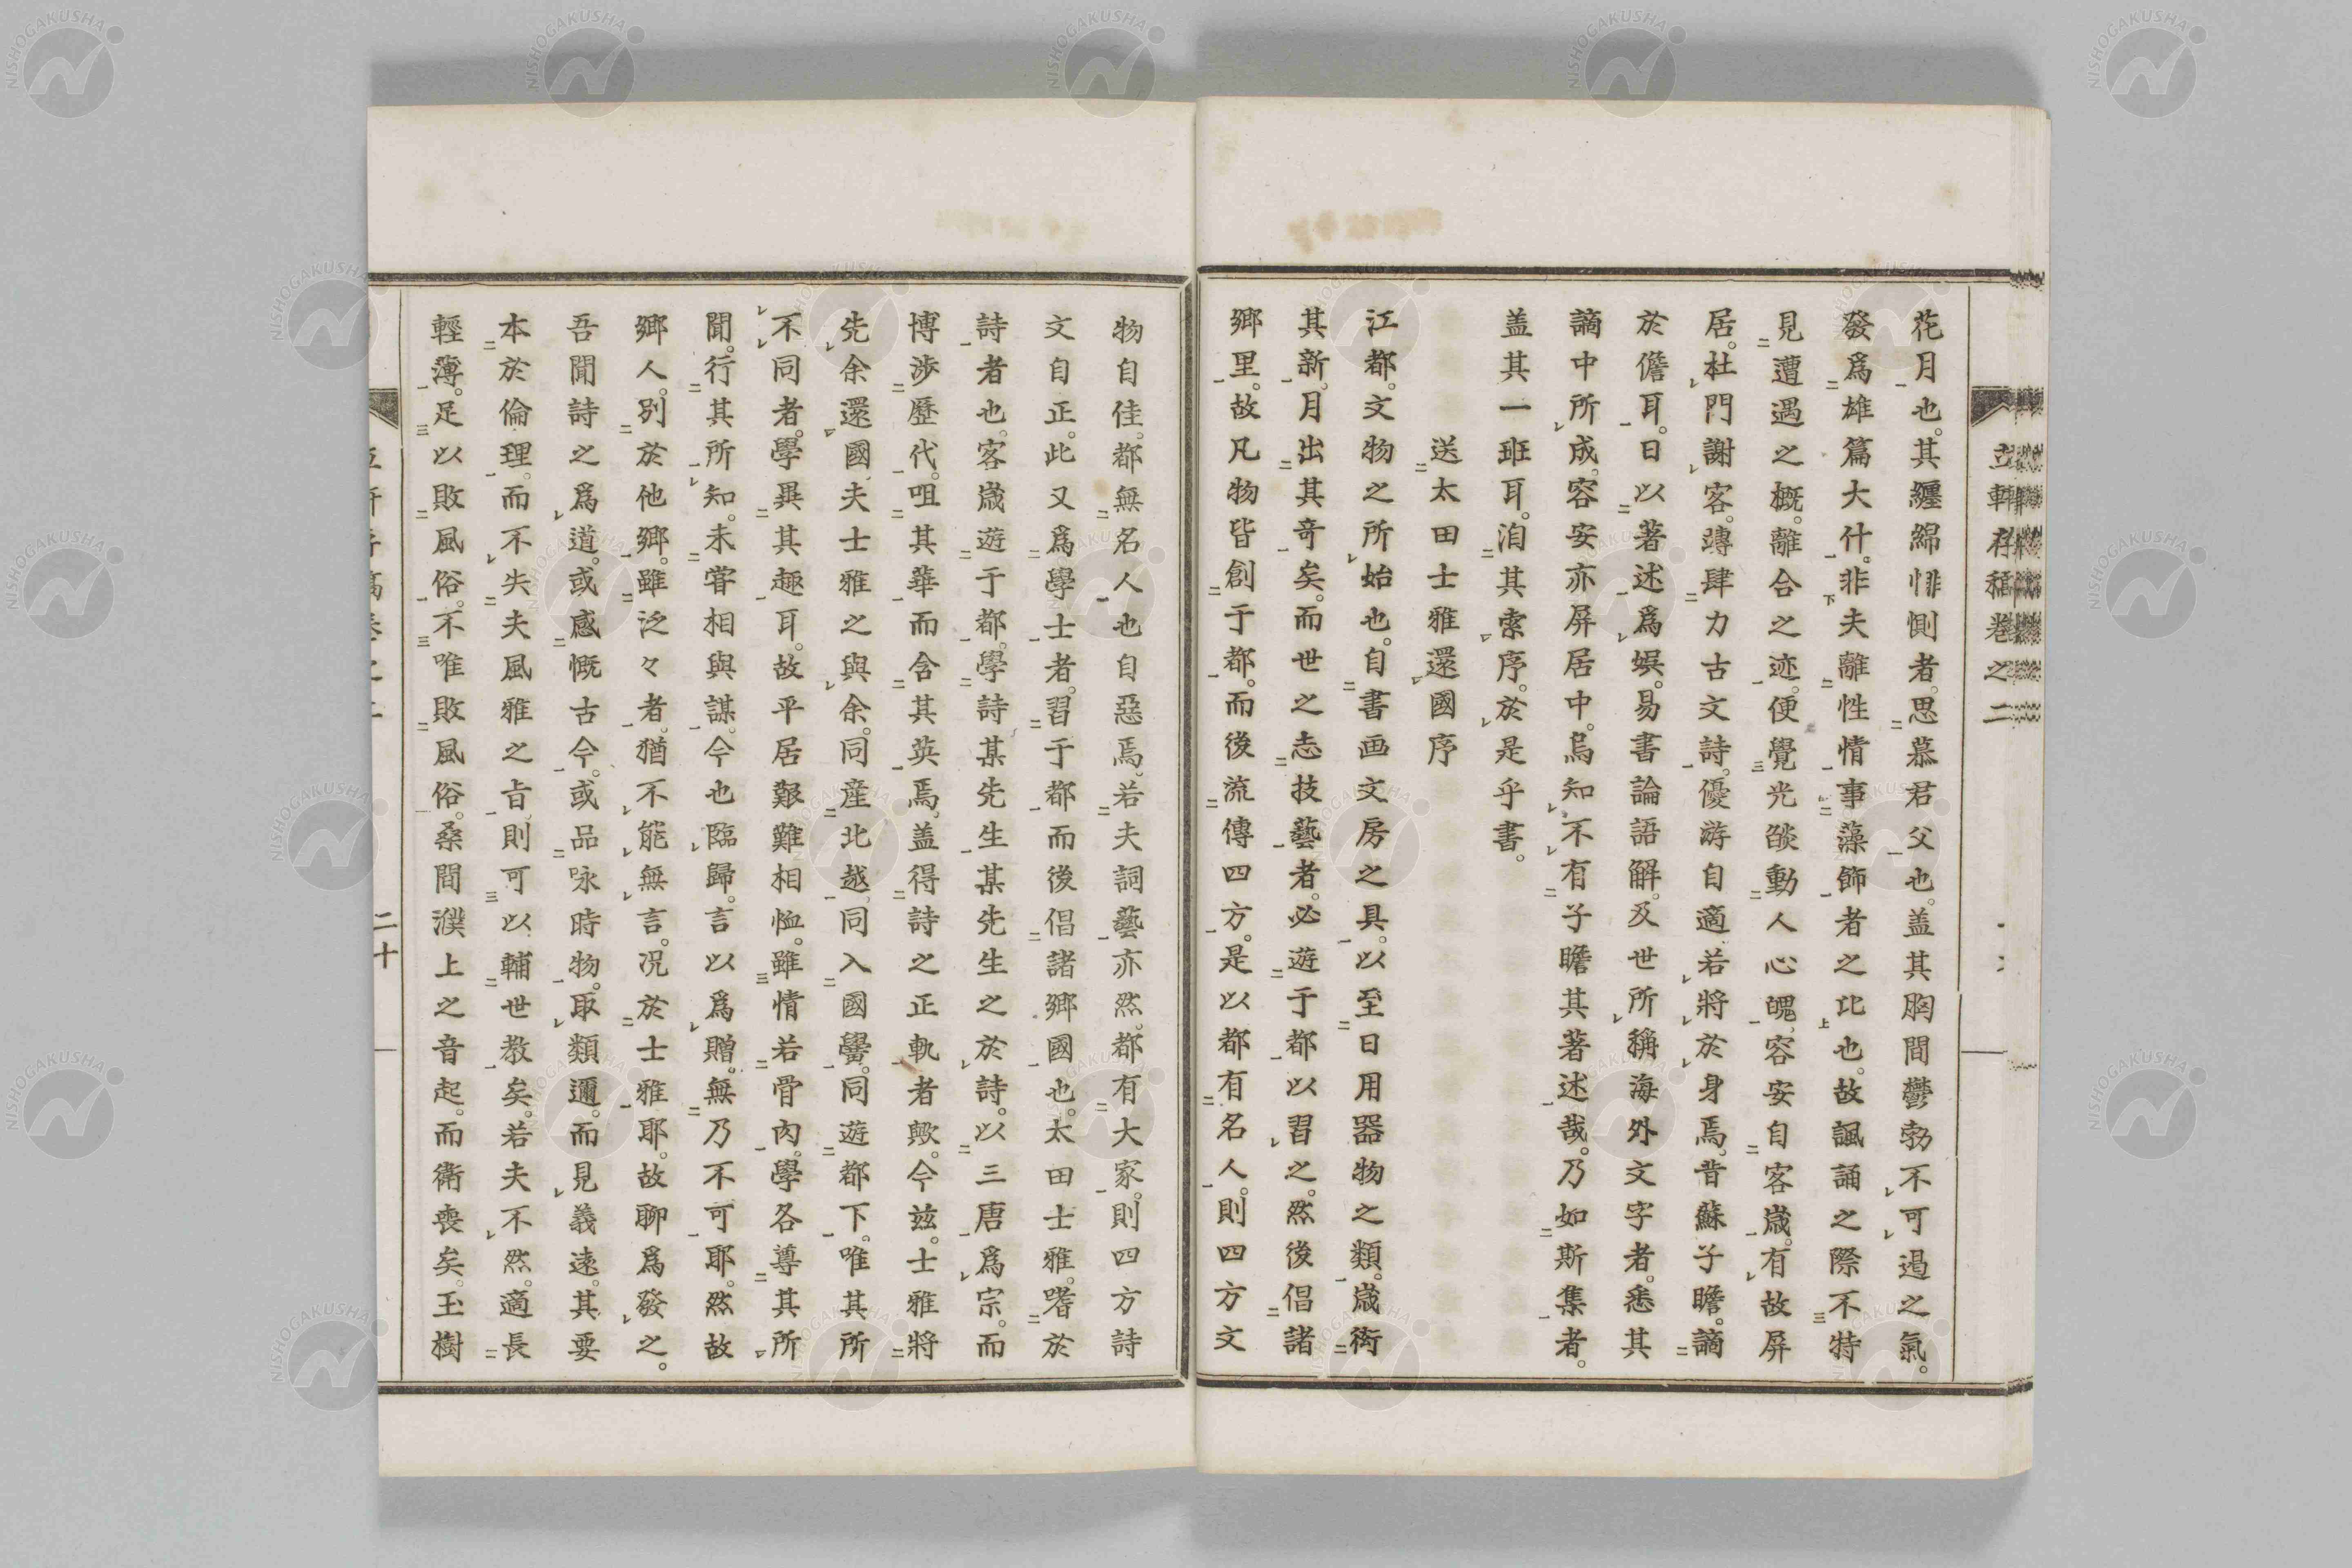 立軒存稿卷之二
花月也。其纏綿悱惻者。思慕君父也。盖其胸間鬱勃不可遏之氣。
發爲雄篇大什。非夫離性情事藻飾者之比也。故諷誦之際不特
見遭遇之概。離合之迹。便覺光燄動人心魄。容安自客歲。有故屏
居。杜門謝客。專肆力古文詩。優游自適若將於身焉。昔蘇子瞻。謫
於儋耳。日以著述爲娯。易書論語解。及世所稱海外文字者。悉其
謫中所成。容安亦屏居中。烏知不有子瞻其著述哉。乃如斯集者。
盖其一班耳。洎其索序。於是乎書。
送太田士雅還國序
江都。文物之所始也。自書画文房之具。以至日用器物之類。歲衒
其新。月出其奇矣。而世之志技藝者。必遊于都以習之。然後倡諸
鄉里。故凡物皆創于都。而後流傳四方。是以都有名人。則四方文
物自佳。都無名人也自惡焉。若夫詞藝亦然。都有大家。則四方詩
文自正。此又爲學士者。習于都而後倡諸鄉國也。太田士雅。嗜於
詩者也。客歲遊于都。學詩某先生某先生之於詩。以三唐爲宗。而
博涉歷代。咀其華而含其英焉。盖得詩之正軌者歟。今玆。士雅將
先余還國。夫士雅之與余。同產北越。同入國黌。同遊都下。唯其所
不同者。學異其趣耳。故平居艱難相恤。雖情若骨肉。學各導其所
聞。行其所知。未嘗相與謀。今也臨歸。言以爲贈。無乃不可耶。然故
鄉人。別於他鄉。雖泛々者。猶不能無言。况於士雅耶。故聊爲發之。
吾聞詩之爲道。或感慨古今。或品咏時物。取類邇。而見義遠。其要
本於倫理。而不失夫風雅之旨。則可以輔世教矣。若夫不然。適長
輕薄。足以敗風俗。不唯敗風俗。桑間濮上之音起。而衛喪矣。玉樹
二十